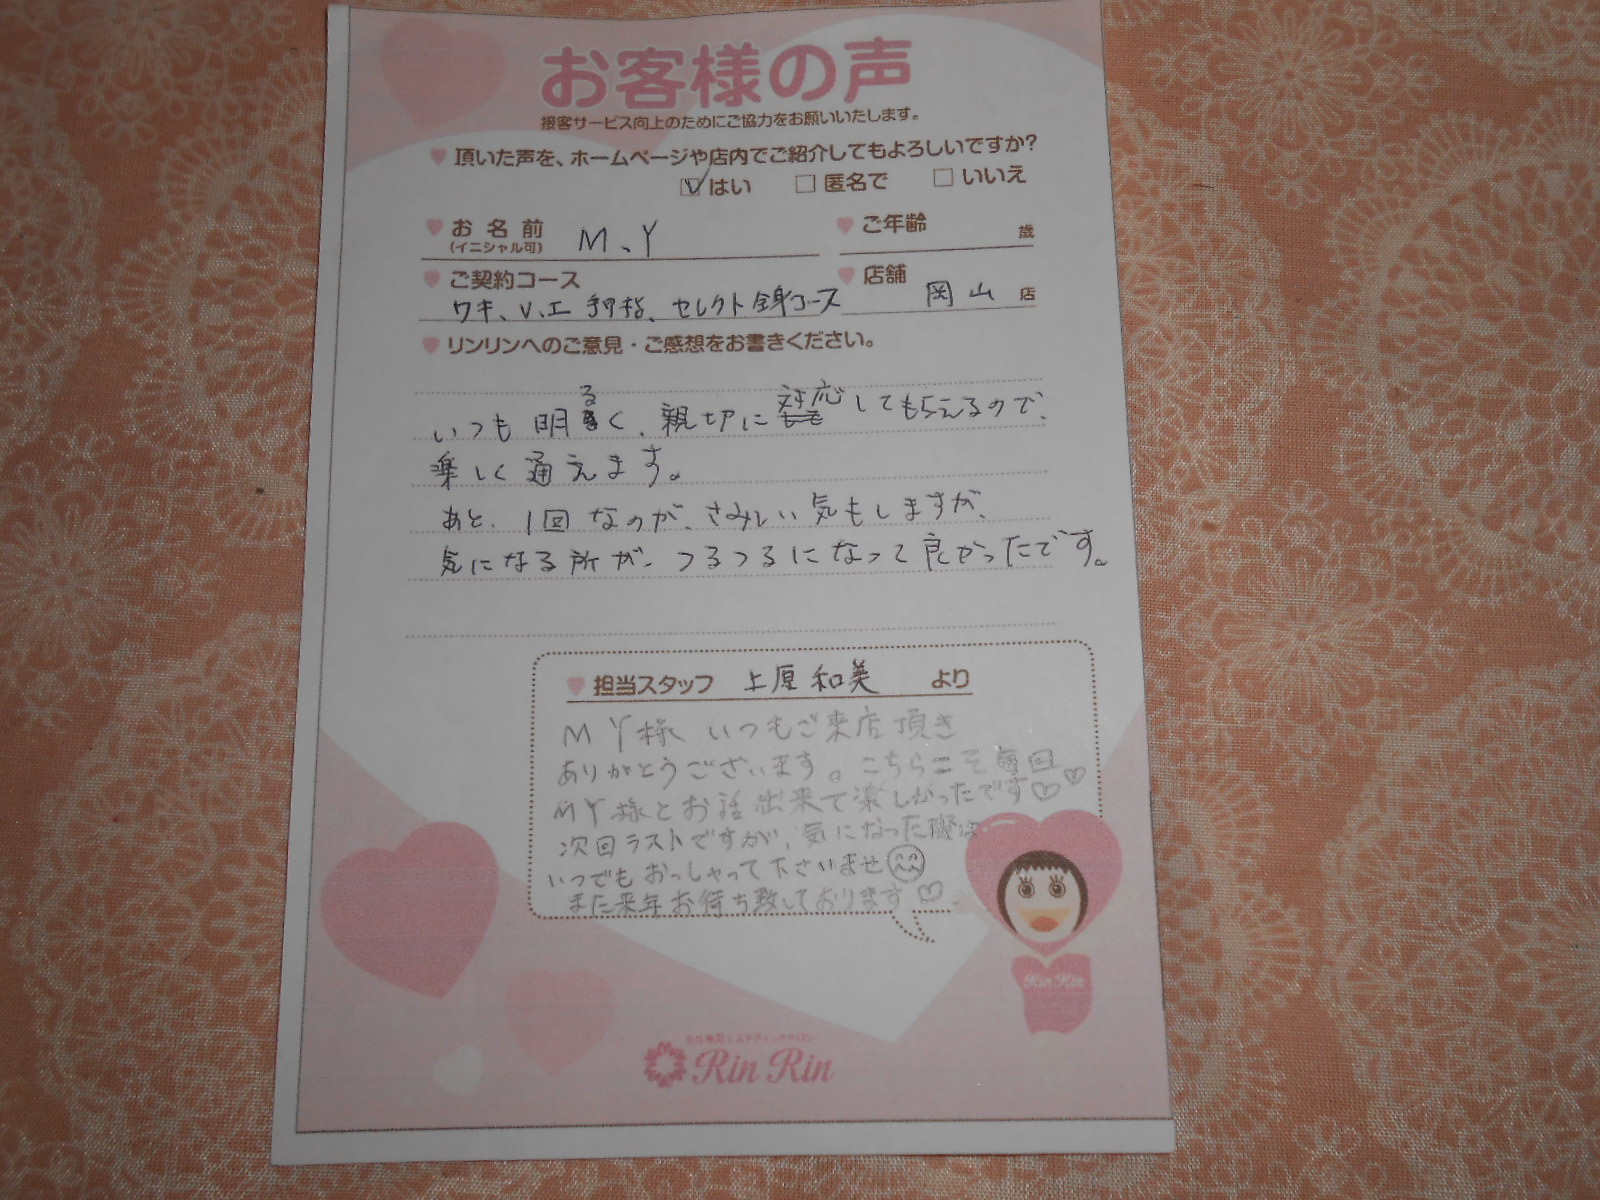 お客様の声
接客サービス向上のためにご協力をお願いいたします。
頂いた声を、ホームページや店内でご紹介してもよろしいですか？
はい 匿名で いいえ
お名前 M、Y ご年齢 歳
(イニシャル可)
ご契約コース 店舗
ワキ、V、I 手甲指、セレクト全身コース 岡山 店
リンリンへのご意見・ご感想をお書きください。
いつも明るく、親切に対応してもらえるので、
楽しく通えます。
あと、1回なのが、さみしい気もしますが、
気になる所が、つるつるになって良かったです。
担当スタッフ 上原和美 より
M Y様 いつもご来店頂き
ありがとうございます。こちらこそ毎回
MY様とお話出来て楽しかったです♡♡
次回ラストですが、気になった際は
いつでもおっしゃって下さいませ
また来年お待ち致しております♡
Rin Rin
女性専用エステティックサロン
Rin Rin